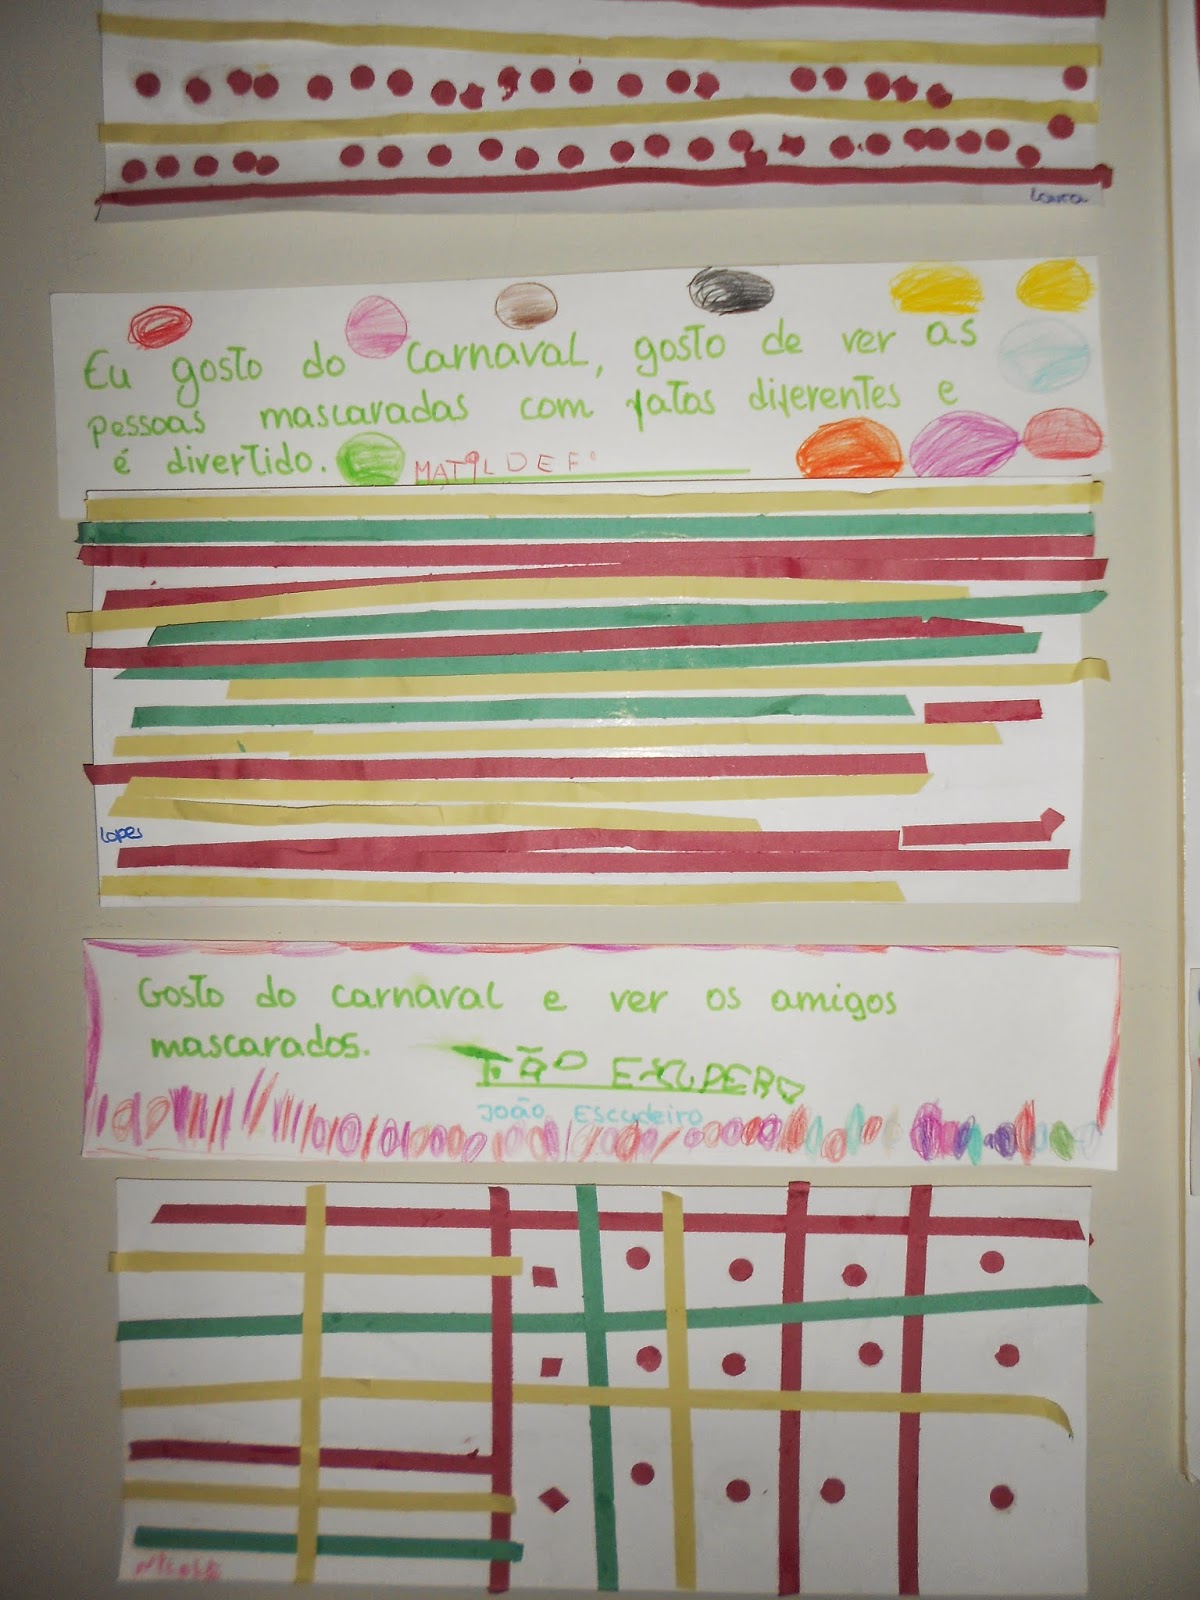 Laura
Eu gosto do Carnaval, gosto de ver as
pessoas mascaradas com fatos diferentes e
é divertido. MATILDE F.
Lopes
Gosto do carnaval e ver os amigos
mascarados.
João Escudeiro
NICOLE